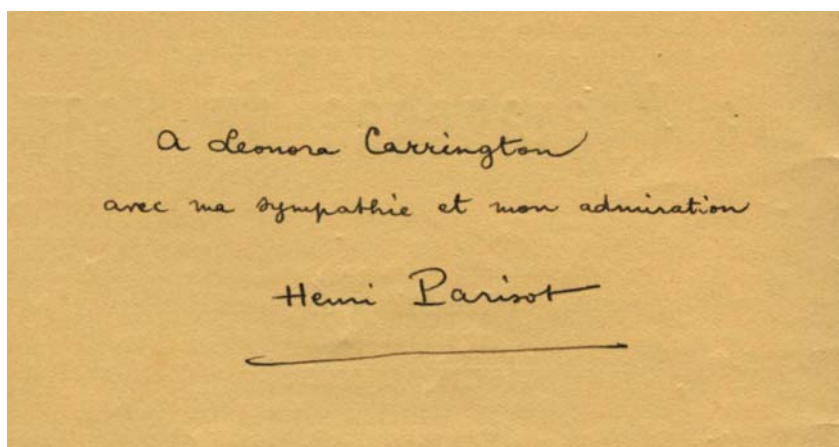 A Leonora Carrington
avec ma sympathie et mon admiration
Henri Parisot